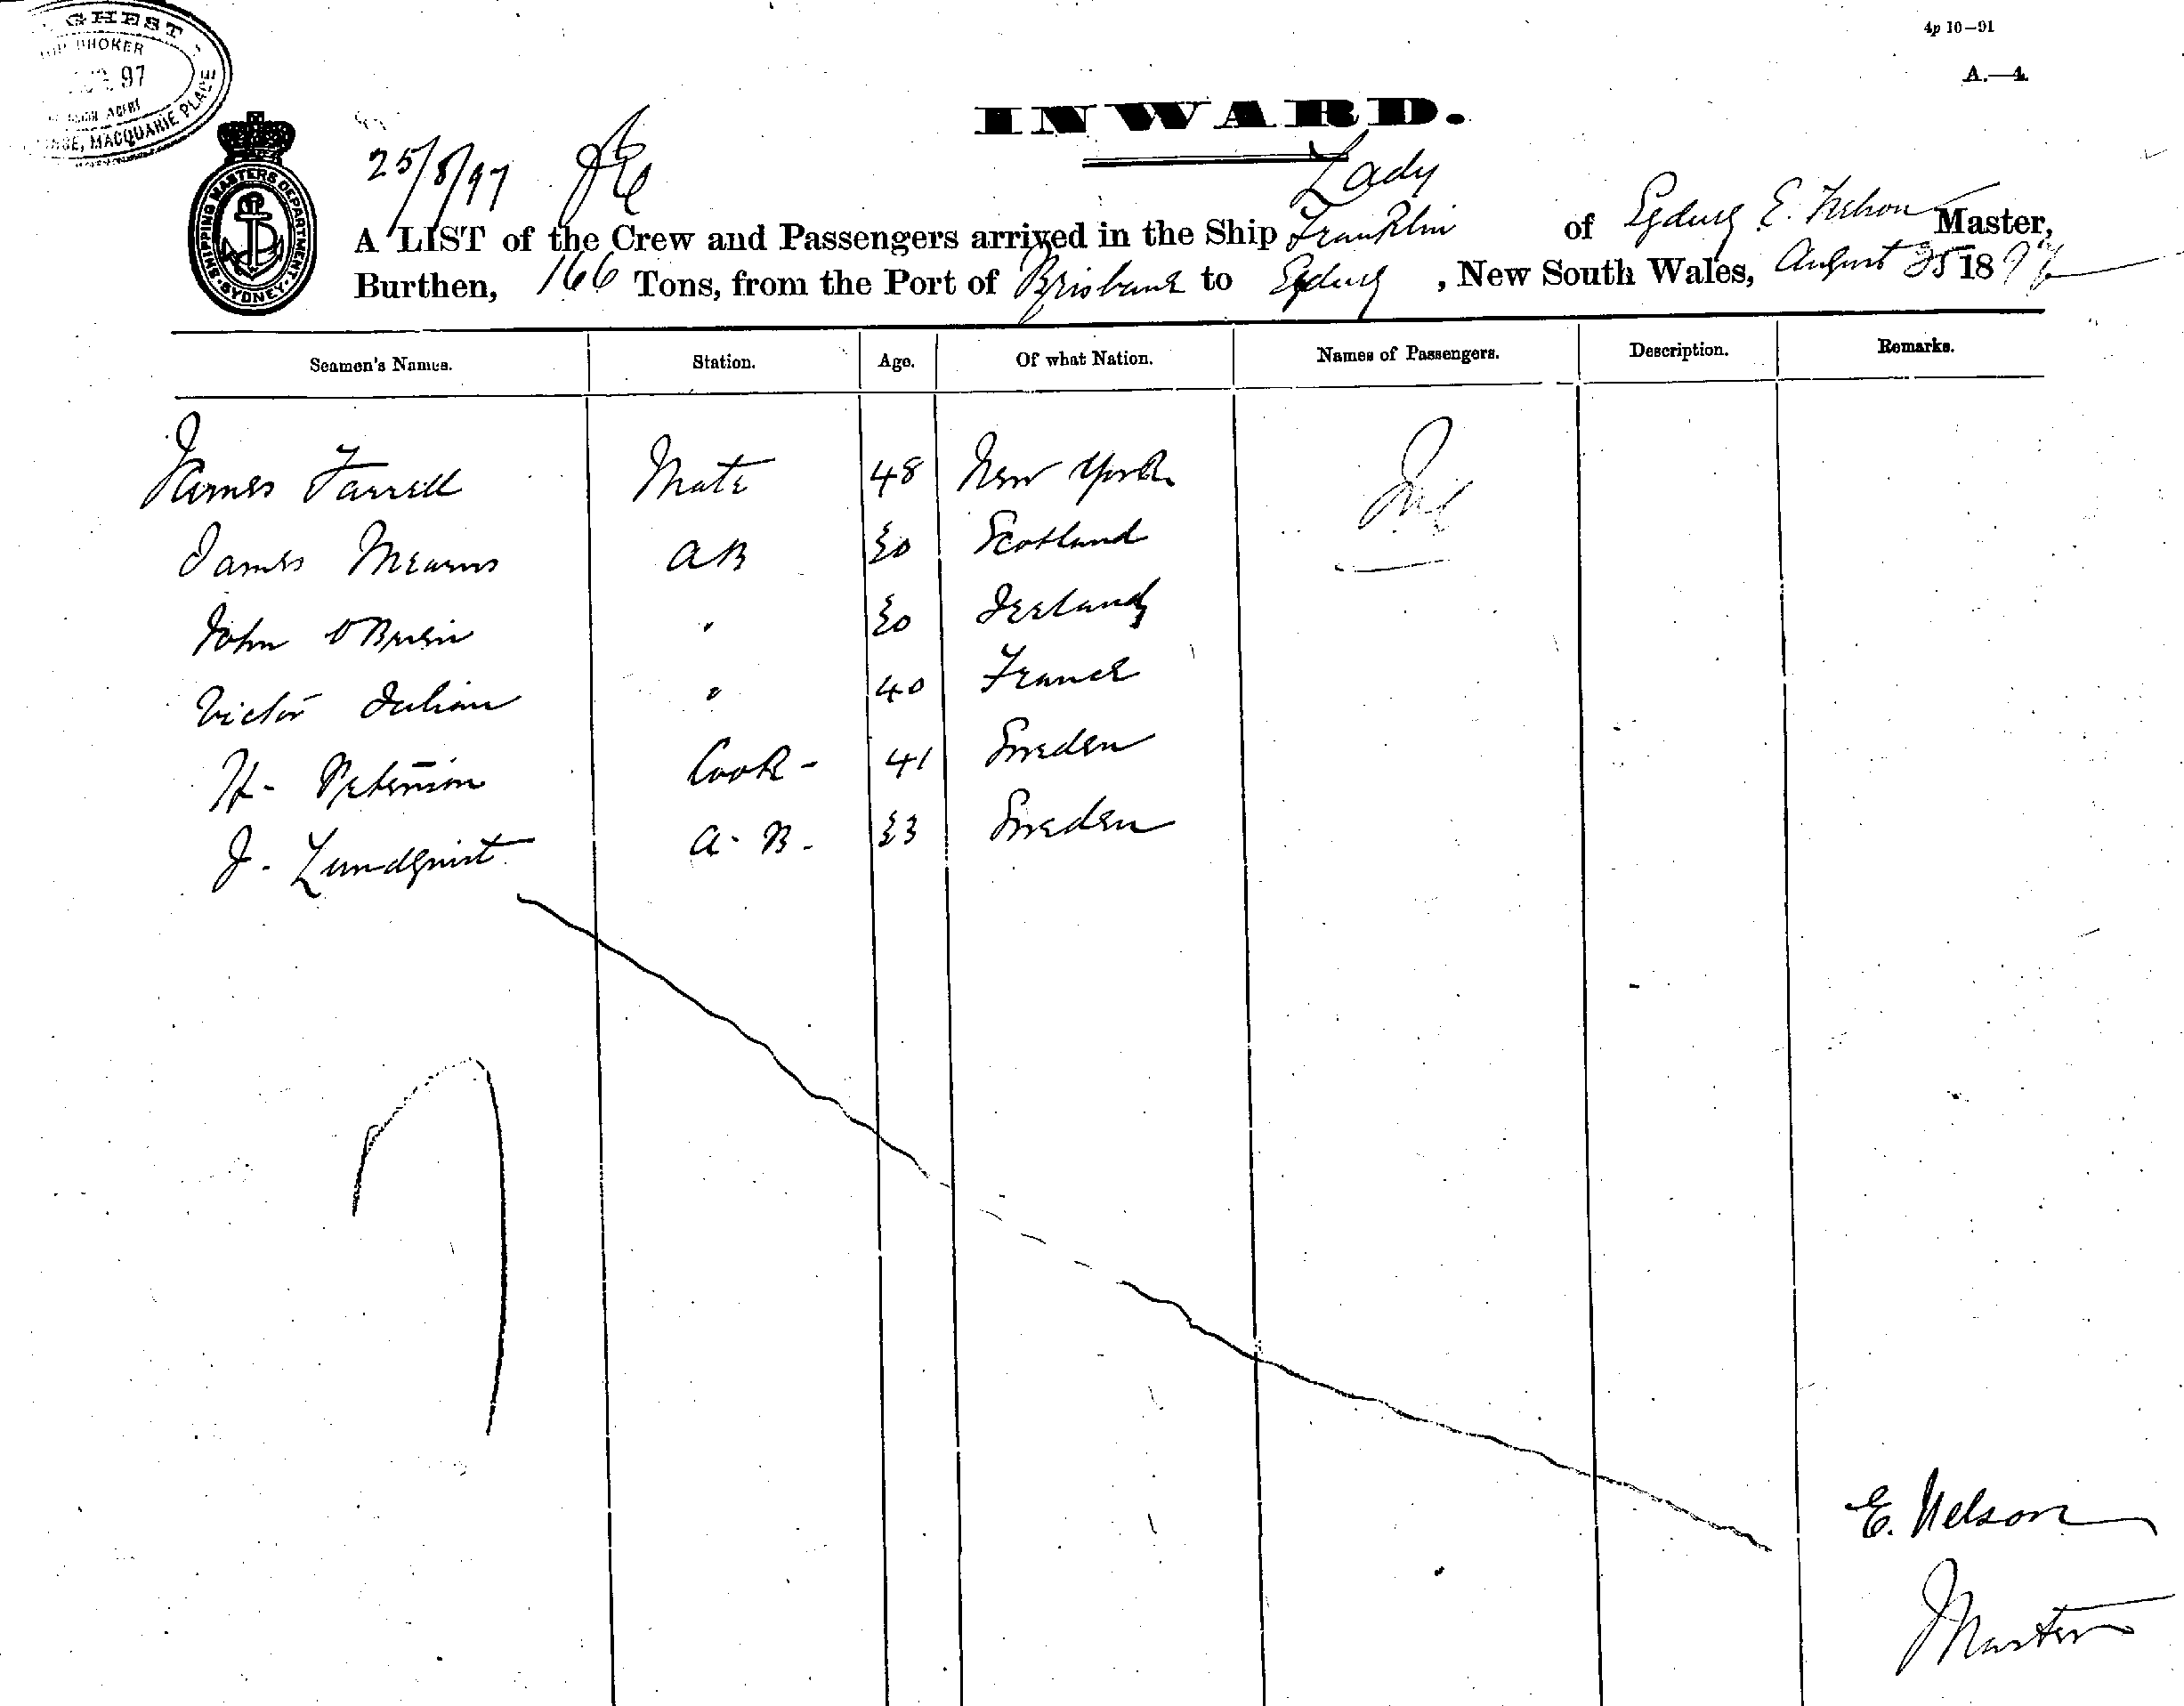 GHEST
BROKER
97
MACQUARIE PLACE
4p 10—91
A.—4.
INWARD.
SHIPPING MASTERS DEPARTMENT
SYDNEY
25/8/97
Lady
A LIST of the Crew and Passengers arrived in the Ship Franklin of Sydney E. Nelson Master,
Burthen, 166 Tons, from the Port of Brisbane to Sydney, New South Wales, August 25 1897
Seamen's Names. Station. Age. Of what Nation. Names of Passengers. Description. Remarks.
James Farrell Mate 48 New York Nil
James Mearns AB 30 Scotland
John O'Brien " 30 Ireland
Victor Julian " 40 France
H- Peterson Cook - 41 Sweden
J. Lundquist A. B. 33 Sweden
E. Nelson
Master